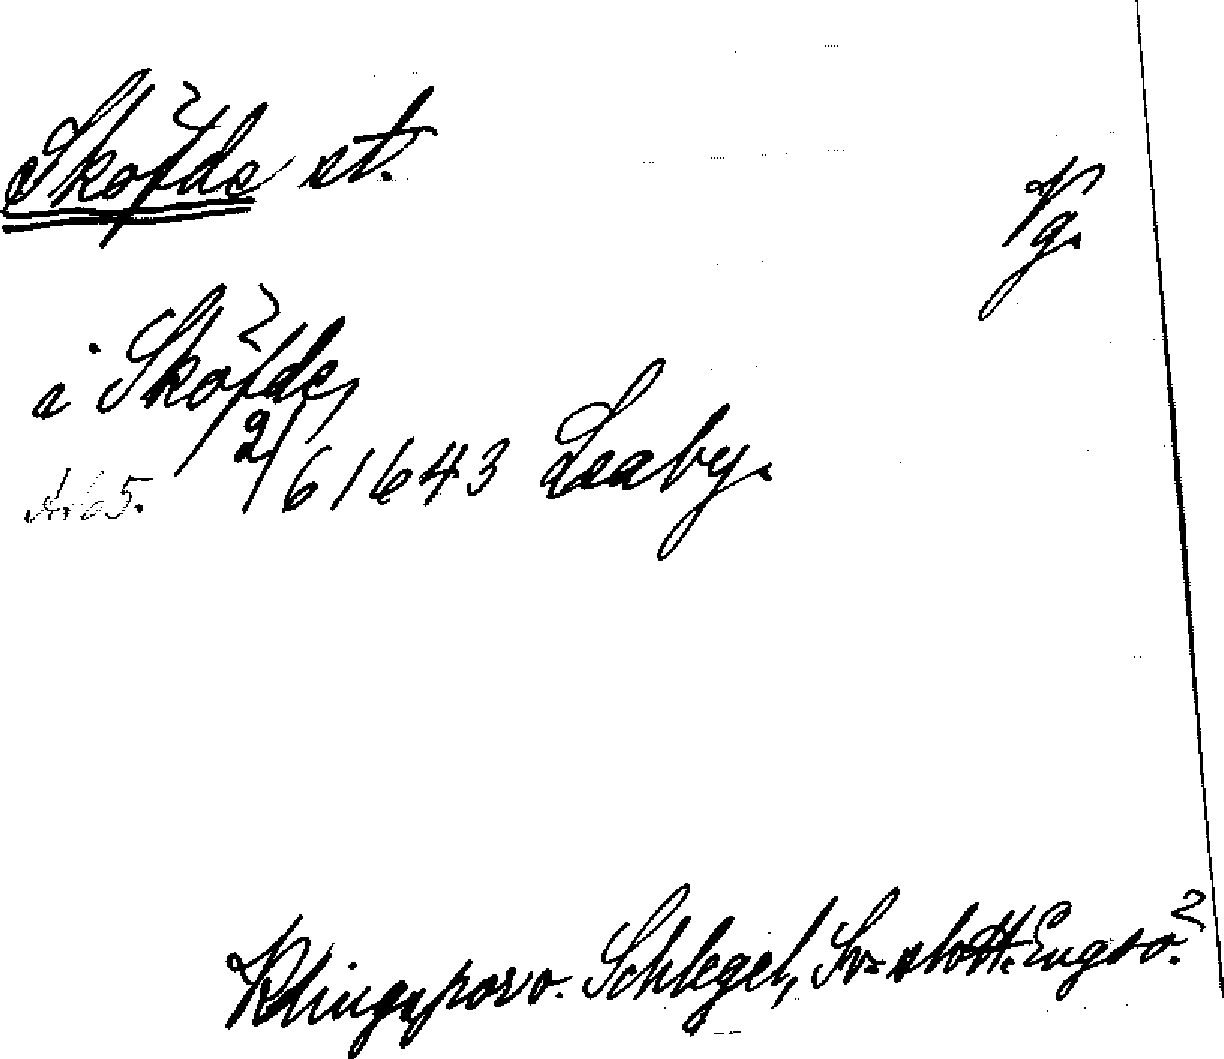 Sköfde st.
Vg.
i Sköfde
2/6 1643 Leaby.
A:65.
Klingspor o. Schlegel, Sv. slott. Engsö.